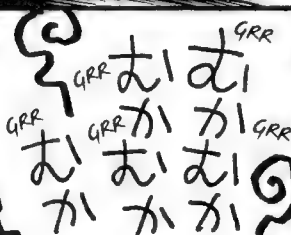 GRR
GRR
むか
むか
GRR
GRR
GRR
むか
むか
むか